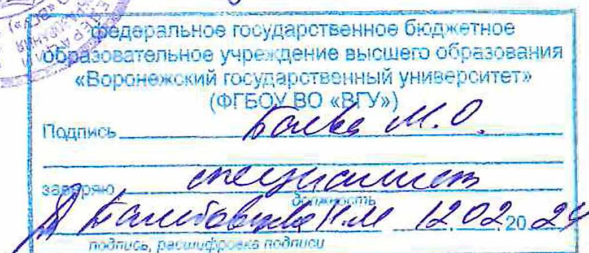 федеральное государственное бюджетное
образовательное учреждение высшего образования
«Воронежский государственный университет»
(ФГБОУ ВО «ВГУ»)
Подпись М.О.
заверяю специалист
должность
12.02.2024
подпись, расшифровка подписи